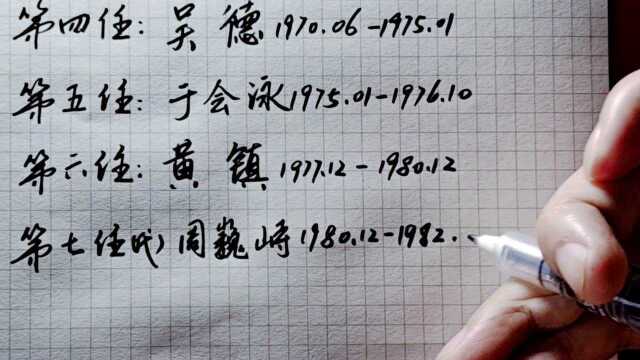 第四任：吴德 1970.06-1975.01
第五任：于会泳1975.01-1976.10
第六任：黄镇 1977.12-1980.12
第七任(代)周巍峙1980.12-1982.